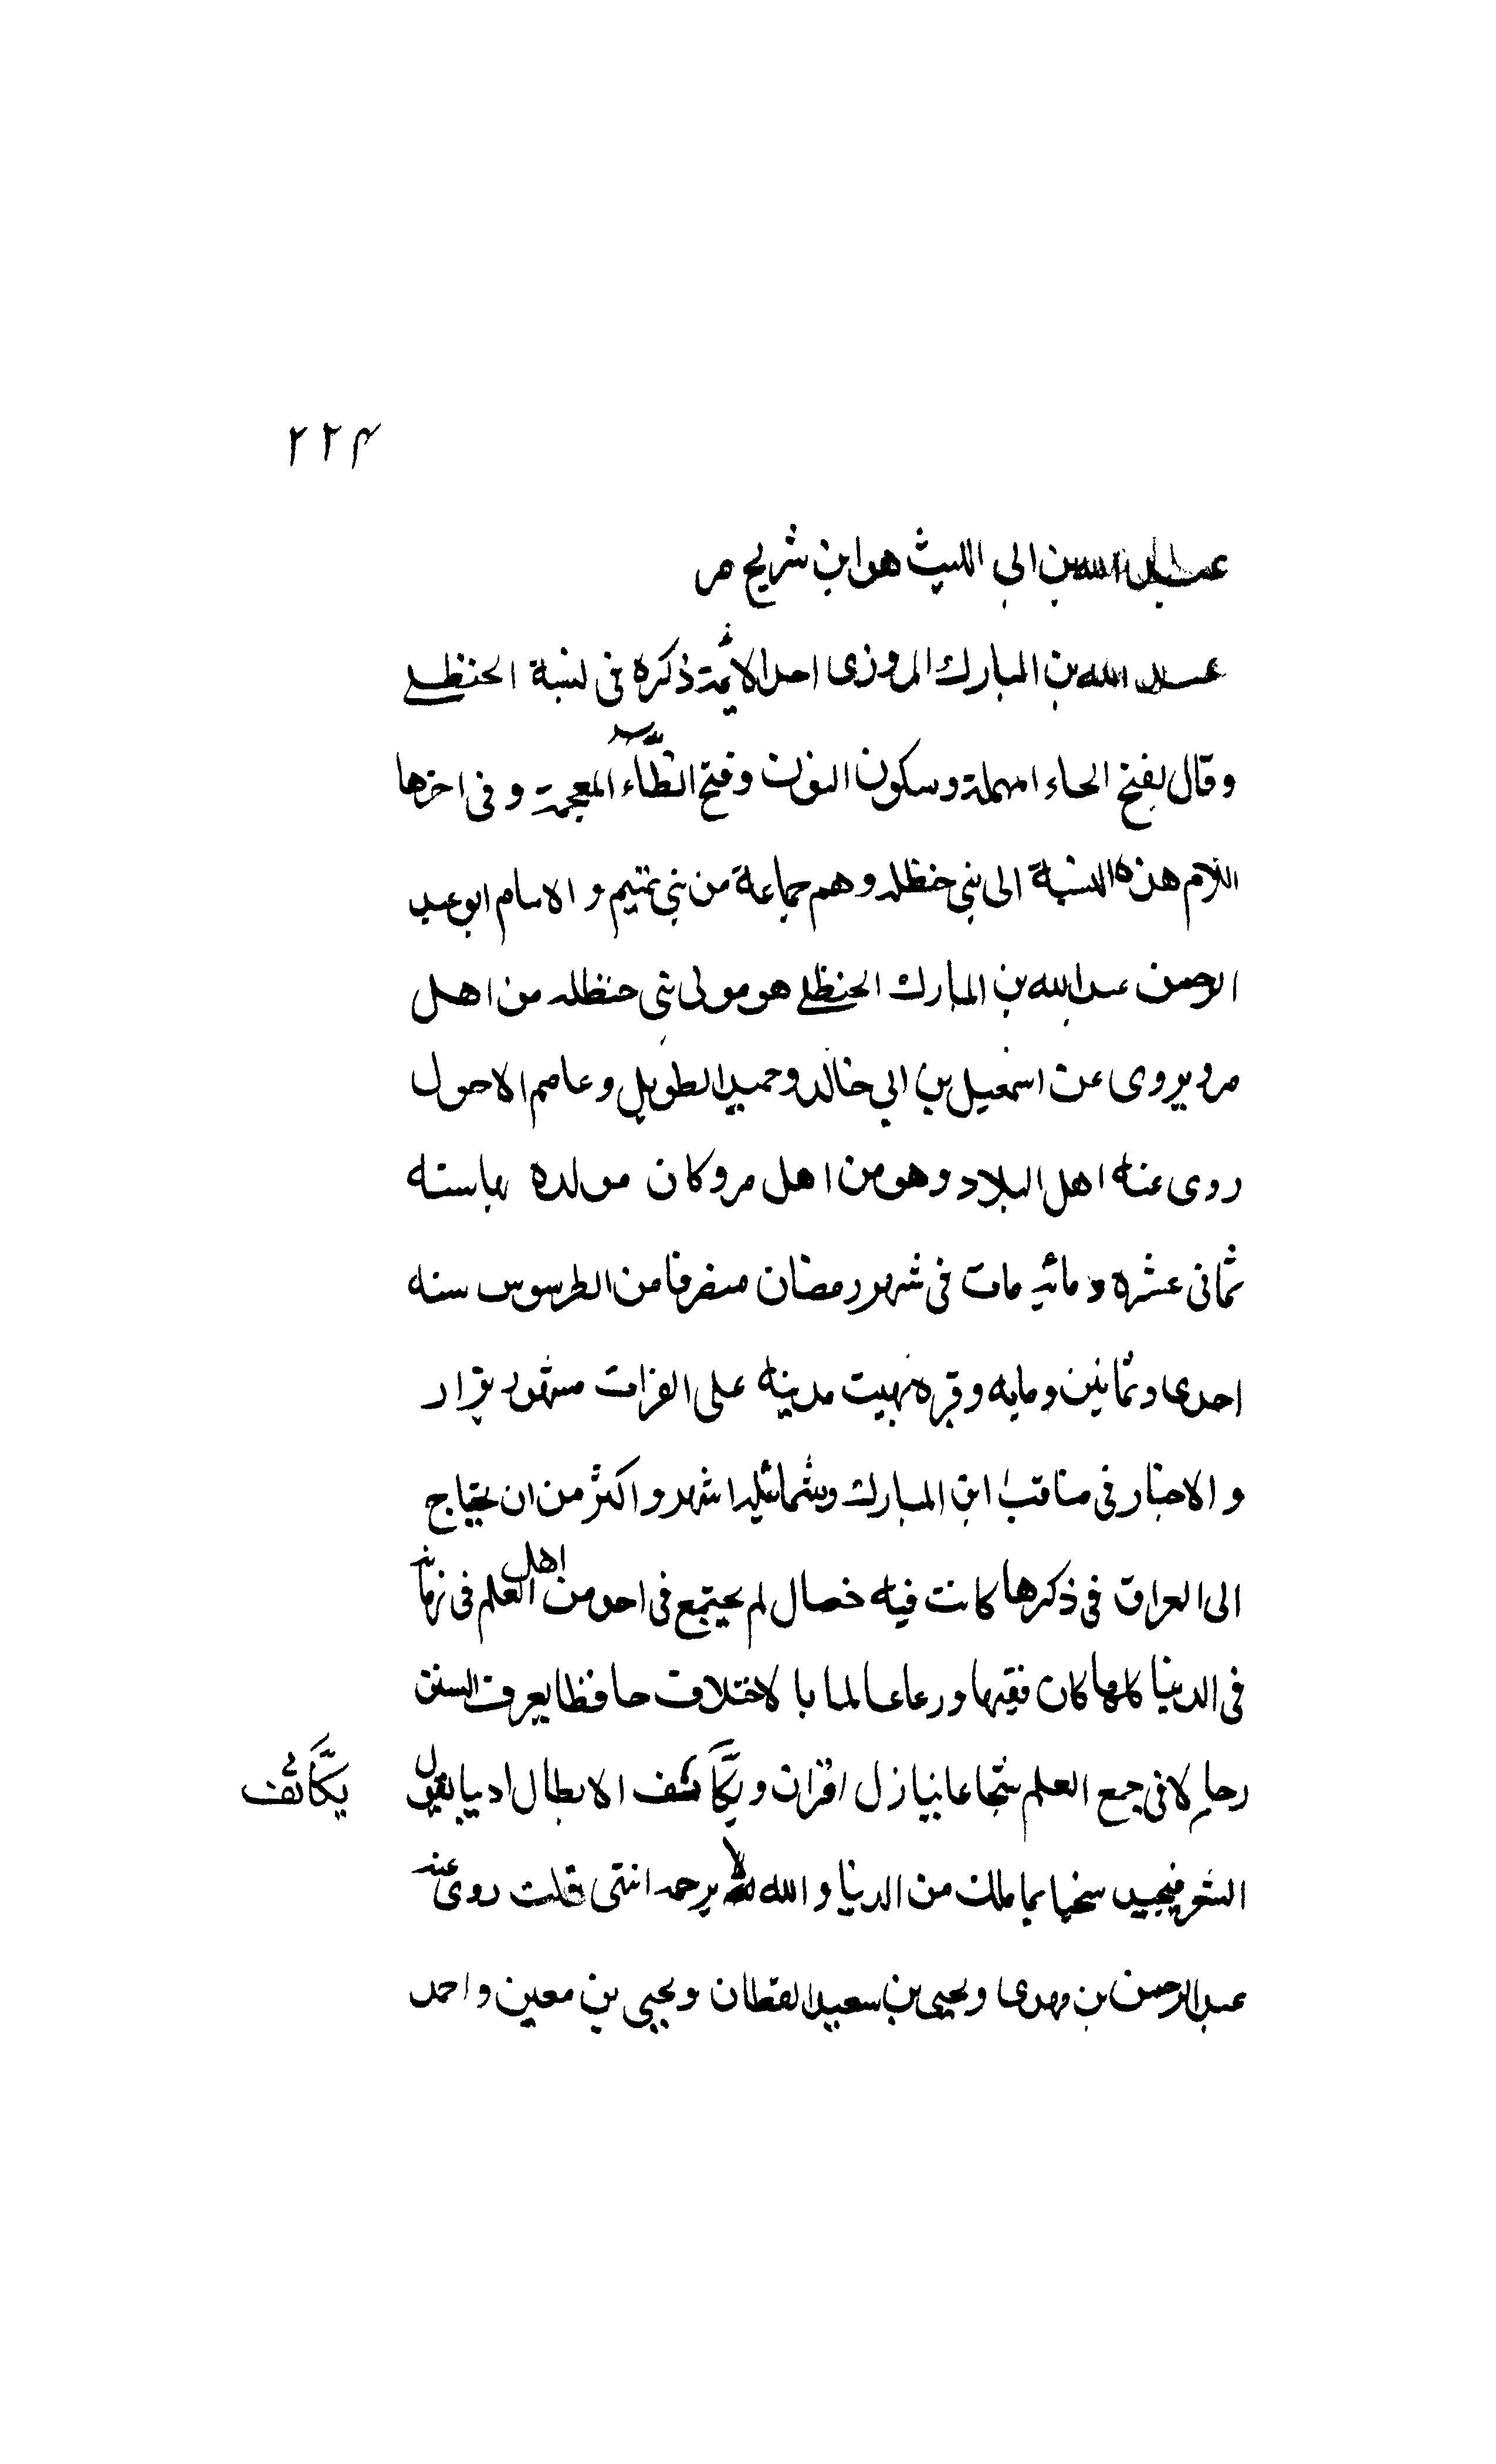 ٢٢٤
عبد الله بن ابى الليث هو ابن شريح مر
عبد الله بن المبارك المروزى احد الائمة ذكره فى نسبة الحنظلى
وقال بفتح الحاء المهملة وسكون النون وفتح الظاء المعجمة و فى اخرها
اللام هذه النسبة الى بنى حنظله وهم جماعة من بنى تميم و الامام ابو عبد
الرحمن عبد الله بن المبارك الحنظلى هو مولى بنى حنظله من اهل
مرو يروى عن اسمعيل بن ابى خالد وحميد الطويل وعاصم الاحول
روى عنه اهل البلاد وهو من اهل مرو كان مولده بها سنه
ثمانى عشره و مائه مات فى شهر رمضان منصرفا من الطرسوس سنه
احدى وثمانين ومايه وقبره بهيت مدينه على الفرات مشهور يزار
و الاخبار فى مناقب ابن المبارك وشمائله اشهر و اكثر من ان يحتاج
الى العراق فى ذكرها كانت فيه خصال لم يجتمع فى احد من اهل العلم فى زمانه
فى الدنيا كلها كان فقيها ورعا عالما با لاختلاف حافظا يعرف السنن
رحالا فى جمع العلم شجاعا ينازل اقران و يكاشف الابطال اديبا يقول يكاثف
الشعر فيجيد سخيا بما ملك من الدنيا و الله يرحمه انتهى قلت روى عنه
عبد الرحمن بن مهدى ويحيى بن سعيد القطان ويحيى بن معين و احمد